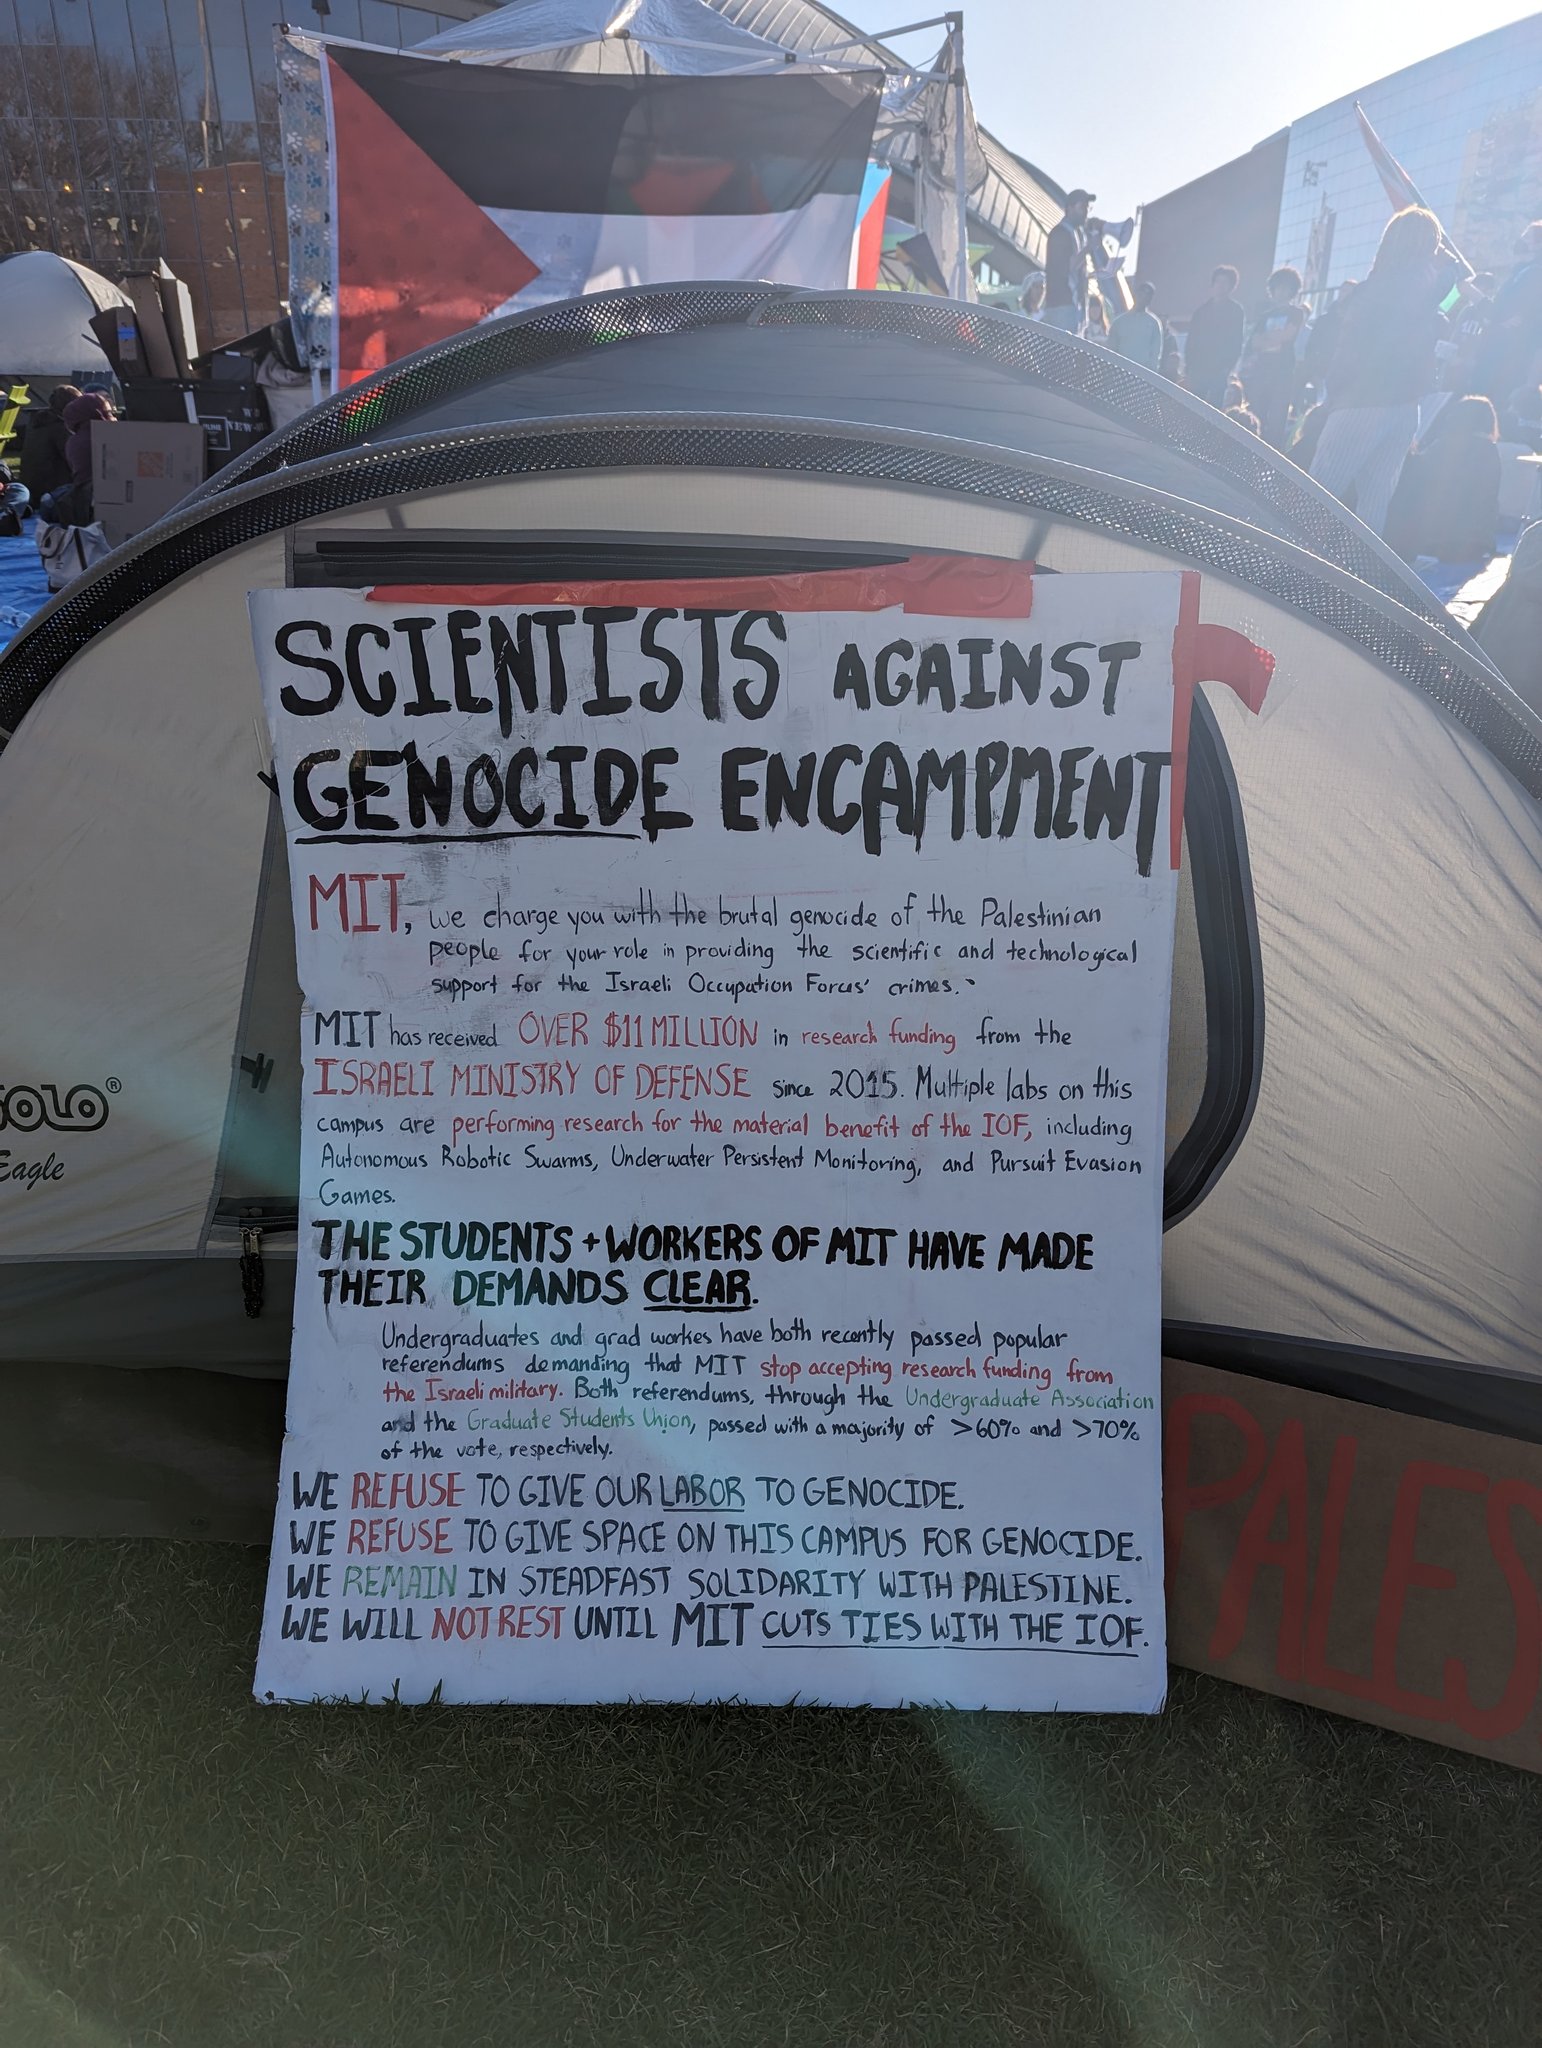 SCIENTISTS AGAINST
GENOCIDE ENCAMPMENT
MIT, we charge you with the brutal genocide of the Palestinian
people for your role in providing the scientific and technological
support for the Israeli Occupation Forces' crimes.
MIT has received OVER $11 MILLION in research funding from the
ISRAELI MINISTRY OF DEFENSE since 2015. Multiple labs on this
campus are performing research for the material benefit of the IOF, including
Autonomous Robotic Swarms, Underwater Persistent Monitoring, and Pursuit Evasion
Games.
THE STUDENTS + WORKERS OF MIT HAVE MADE
THEIR DEMANDS CLEAR.
Undergraduates and grad workes have both recently passed popular
referendums demanding that MIT stop accepting research funding from
the Israeli military. Both referendums, through the Undergraduate Association
and the Graduate Students Union, passed with a majority of >60% and >70%
of the vote, respectively.
WE REFUSE TO GIVE OUR LABOR TO GENOCIDE.
WE REFUSE TO GIVE SPACE ON THIS CAMPUS FOR GENOCIDE.
WE REMAIN IN STEADFAST SOLIDARITY WITH PALESTINE.
WE WILL NOT REST UNTIL MIT CUTS TIES WITH THE IOF.
Eagle
PALES